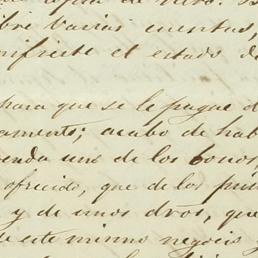 bre varias cuentas,
nifieste el estado de
para que se le pague d
amente; acabo de hab
enda uno de los bonos,
ofrecido, que de los pun
y de unos dros, que
de este mismo negocio y